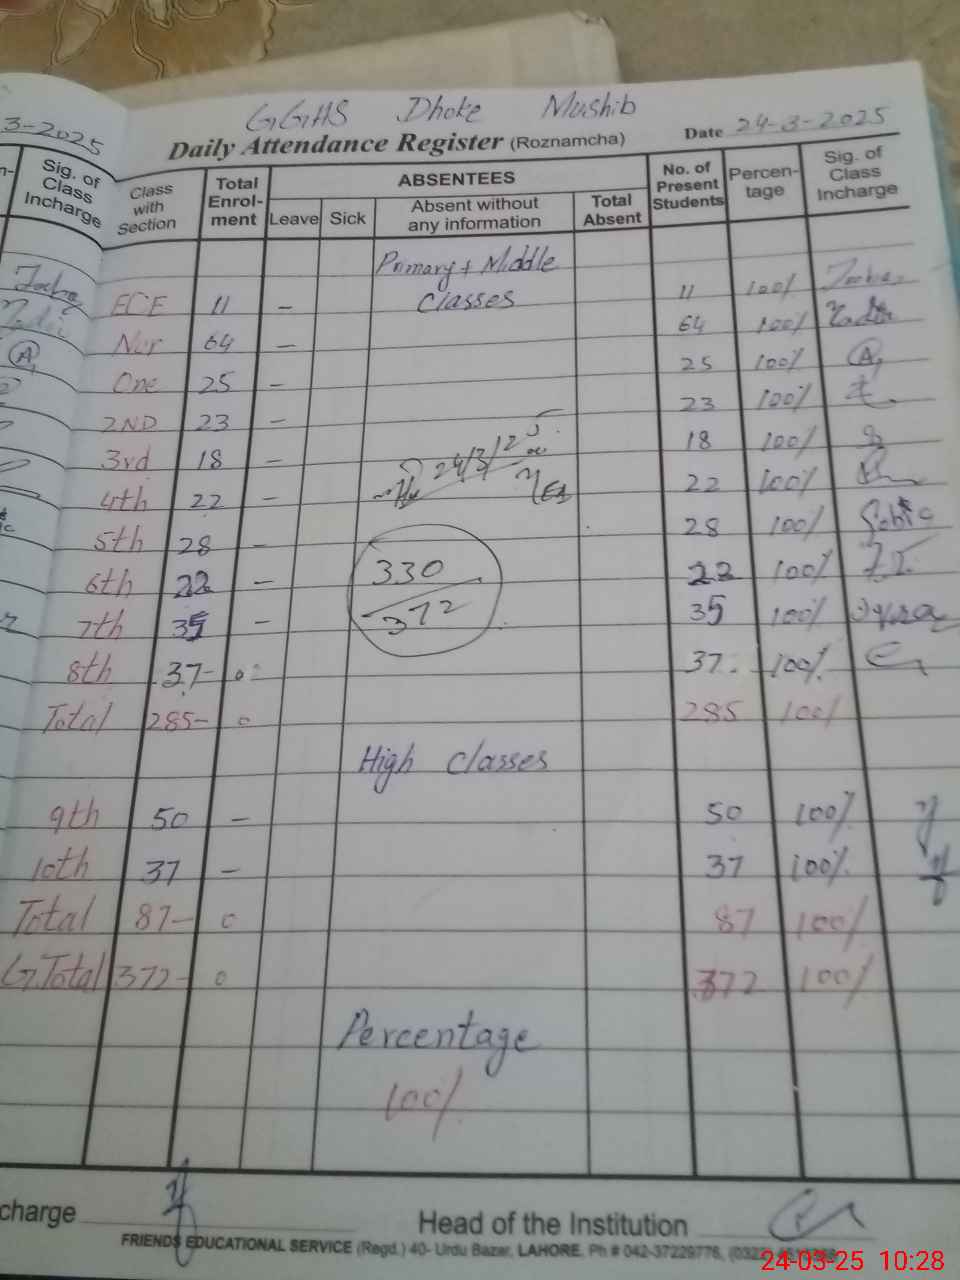 GGHS Dhoke Mushib
3-2025
Daily Attendance Register (Roznamcha) Date 24-3-2025
Sig. of Class Incharge
Class with Section
Total Enrol-ment
ABSENTEES
Leave
Sick
Absent without any information
Total Absent
No. of Present Students
Percen-tage
Sig. of Class Incharge
Primary + Middle
Classes
ECE 11 – 11 100%
Nur 64 – 64 100%
One 25 – 25 100%
2ND 23 – 23 100%
3rd 18 – 18 100%
4th 22 – 22 100%
5th 28 – 28 100%
6th 22 – 22 100%
7th 35 – 35 100%
8th 37- 0 37. 100%
24/3/25
330
372
Total 285- 0 285 100%
High Classes
9th 50 – 50 100%
10th 37 – 37 100%
Total 87- 0 87 100%
G.Total 372- 0 372 100%
Percentage
100%
charge
Head of the Institution
FRIENDS EDUCATIONAL SERVICE (Regd.) 40- Urdu Bazar, LAHORE. Ph # 042-37229776,
24-03-25 10:28